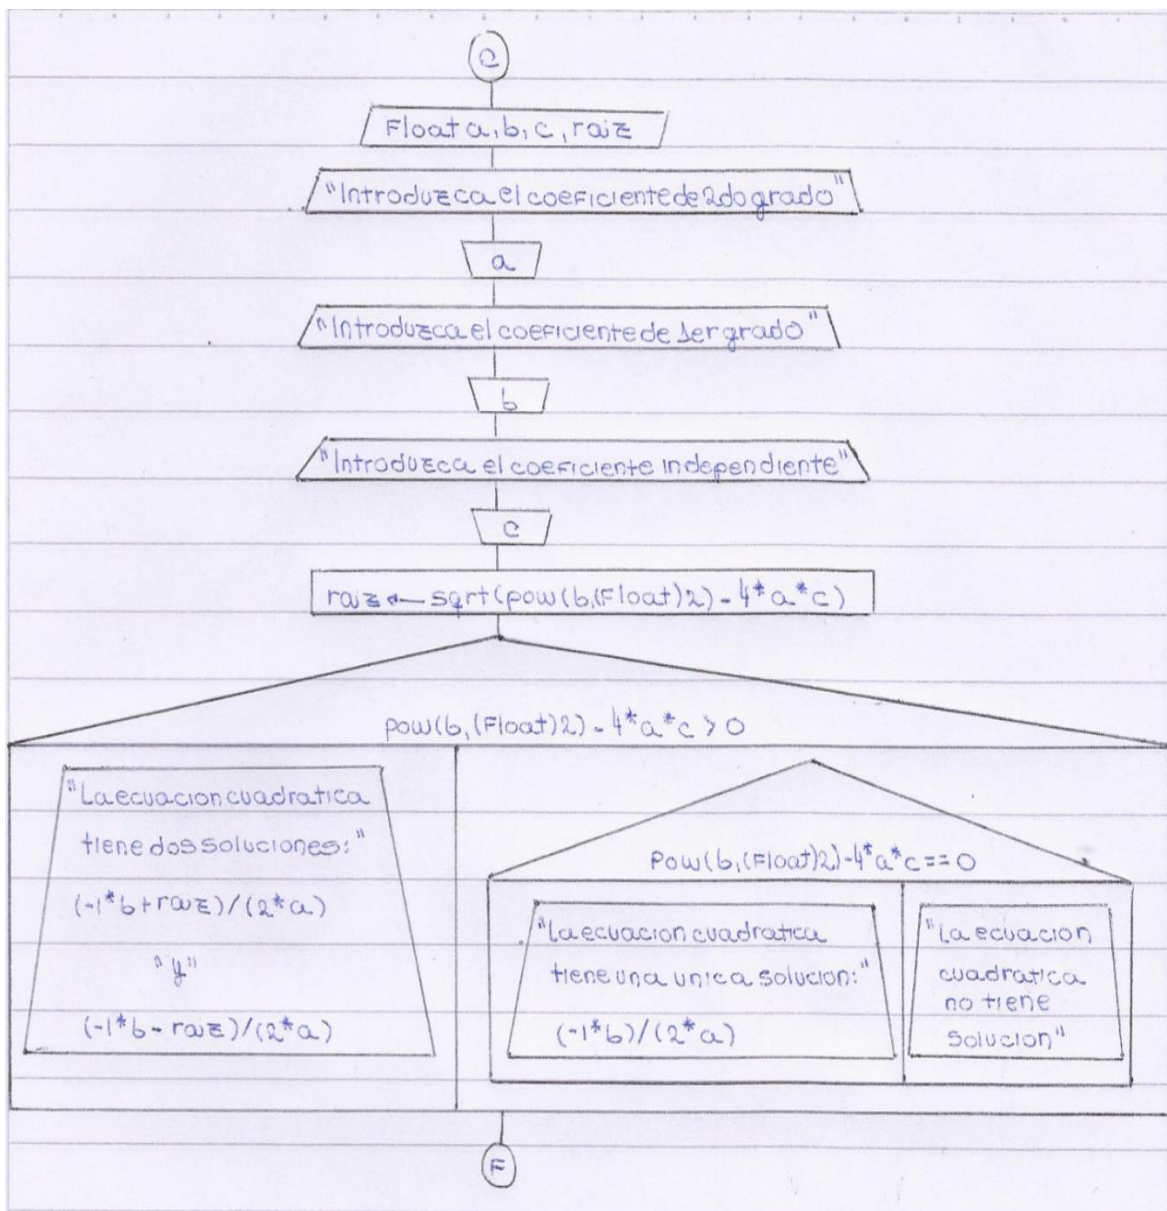 C
Float a, b, c, raiz
"Introduzca el coeficiente de 2do grado"
a
"Introduzca el coeficiente de 1er grado"
b
"Introduzca el coeficiente independiente"
c
raiz ← sqrt(pow(b,(Float)2) - 4*a*c)
pow(b,(Float)2) - 4*a*c > 0
"La ecuacion cuadratica
tiene dos soluciones:"
(-1*b+raiz)/(2*a)
"y"
(-1*b-raiz)/(2*a)
Pow(b,(Float)2)-4*a*c == 0
"La ecuacion cuadratica
tiene una unica solucion:"
(-1*b)/(2*a)
"La ecuacion
cuadratica
no tiene
solucion"
F